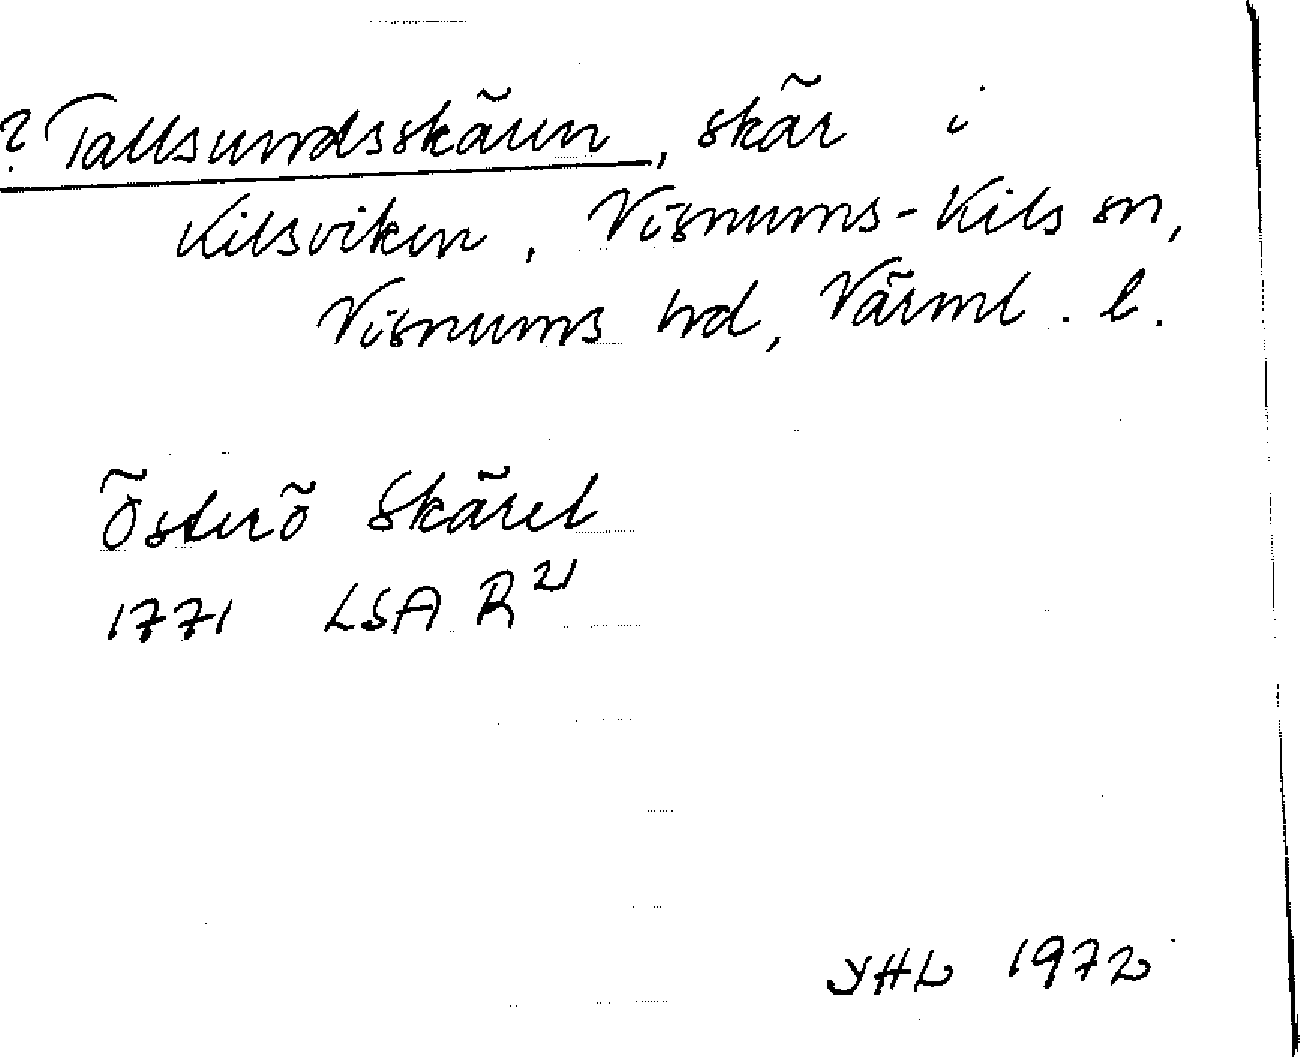 ? Tallsundsskären, skär i
Kilsviken, Visnums-Kils sn,
Visnums hd, Värml. l.
Österö Skäret
1771 LSA R 21
YHL 1972